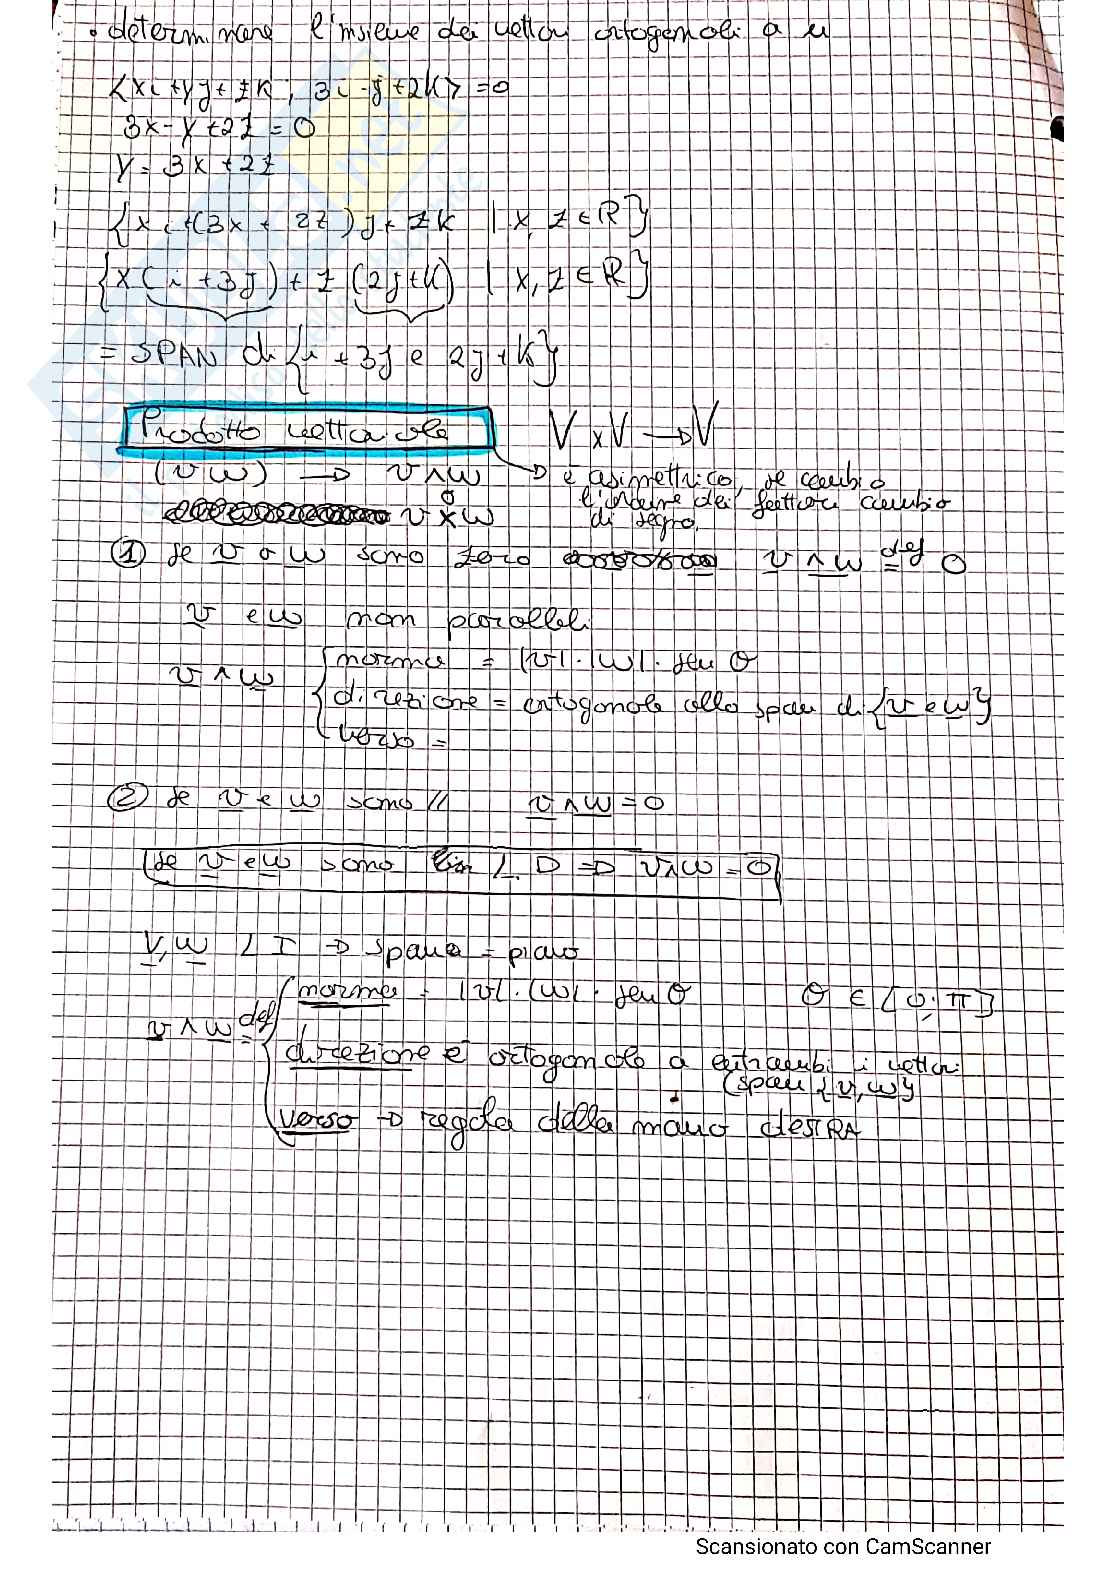 • determinare l'insieme dei vettori ortogonali a u
<xi + yj + zk ; 3i - j + 2k> = 0
3x - y + 2z = 0
y = 3x + 2z
{xi + (3x + 2z)j + zk | x, z ∈ ℝ}
{x(i + 3j) + z(2j + k) | x, z ∈ ℝ}
= SPAN di {i + 3j e 2j + k}
Prodotto vettoriale V x V → V
(v w) → v ∧ w → è asimettrico, se cambio
l'ordine dei fattori cambio
o
v x w di segno.
① se v o w sono zero v ∧ w def= 0
v e w non paralleli
v ∧ w { norma = |v| · |w| · sen θ
direzione = ortogonale allo span di {v e w}
verso =
② se v e w sono // v ∧ w = 0
se v e w sono L. D ⇒ v ∧ w = 0
v, w L I ⇒ span = piano
v ∧ w def= { norma = |v| · |w| · sen θ θ ∈ [0; π]
direzione è ortogonale a entrambi i vettori
(span {v, w}
verso → regola della mano destra
Scansionato con CamScanner